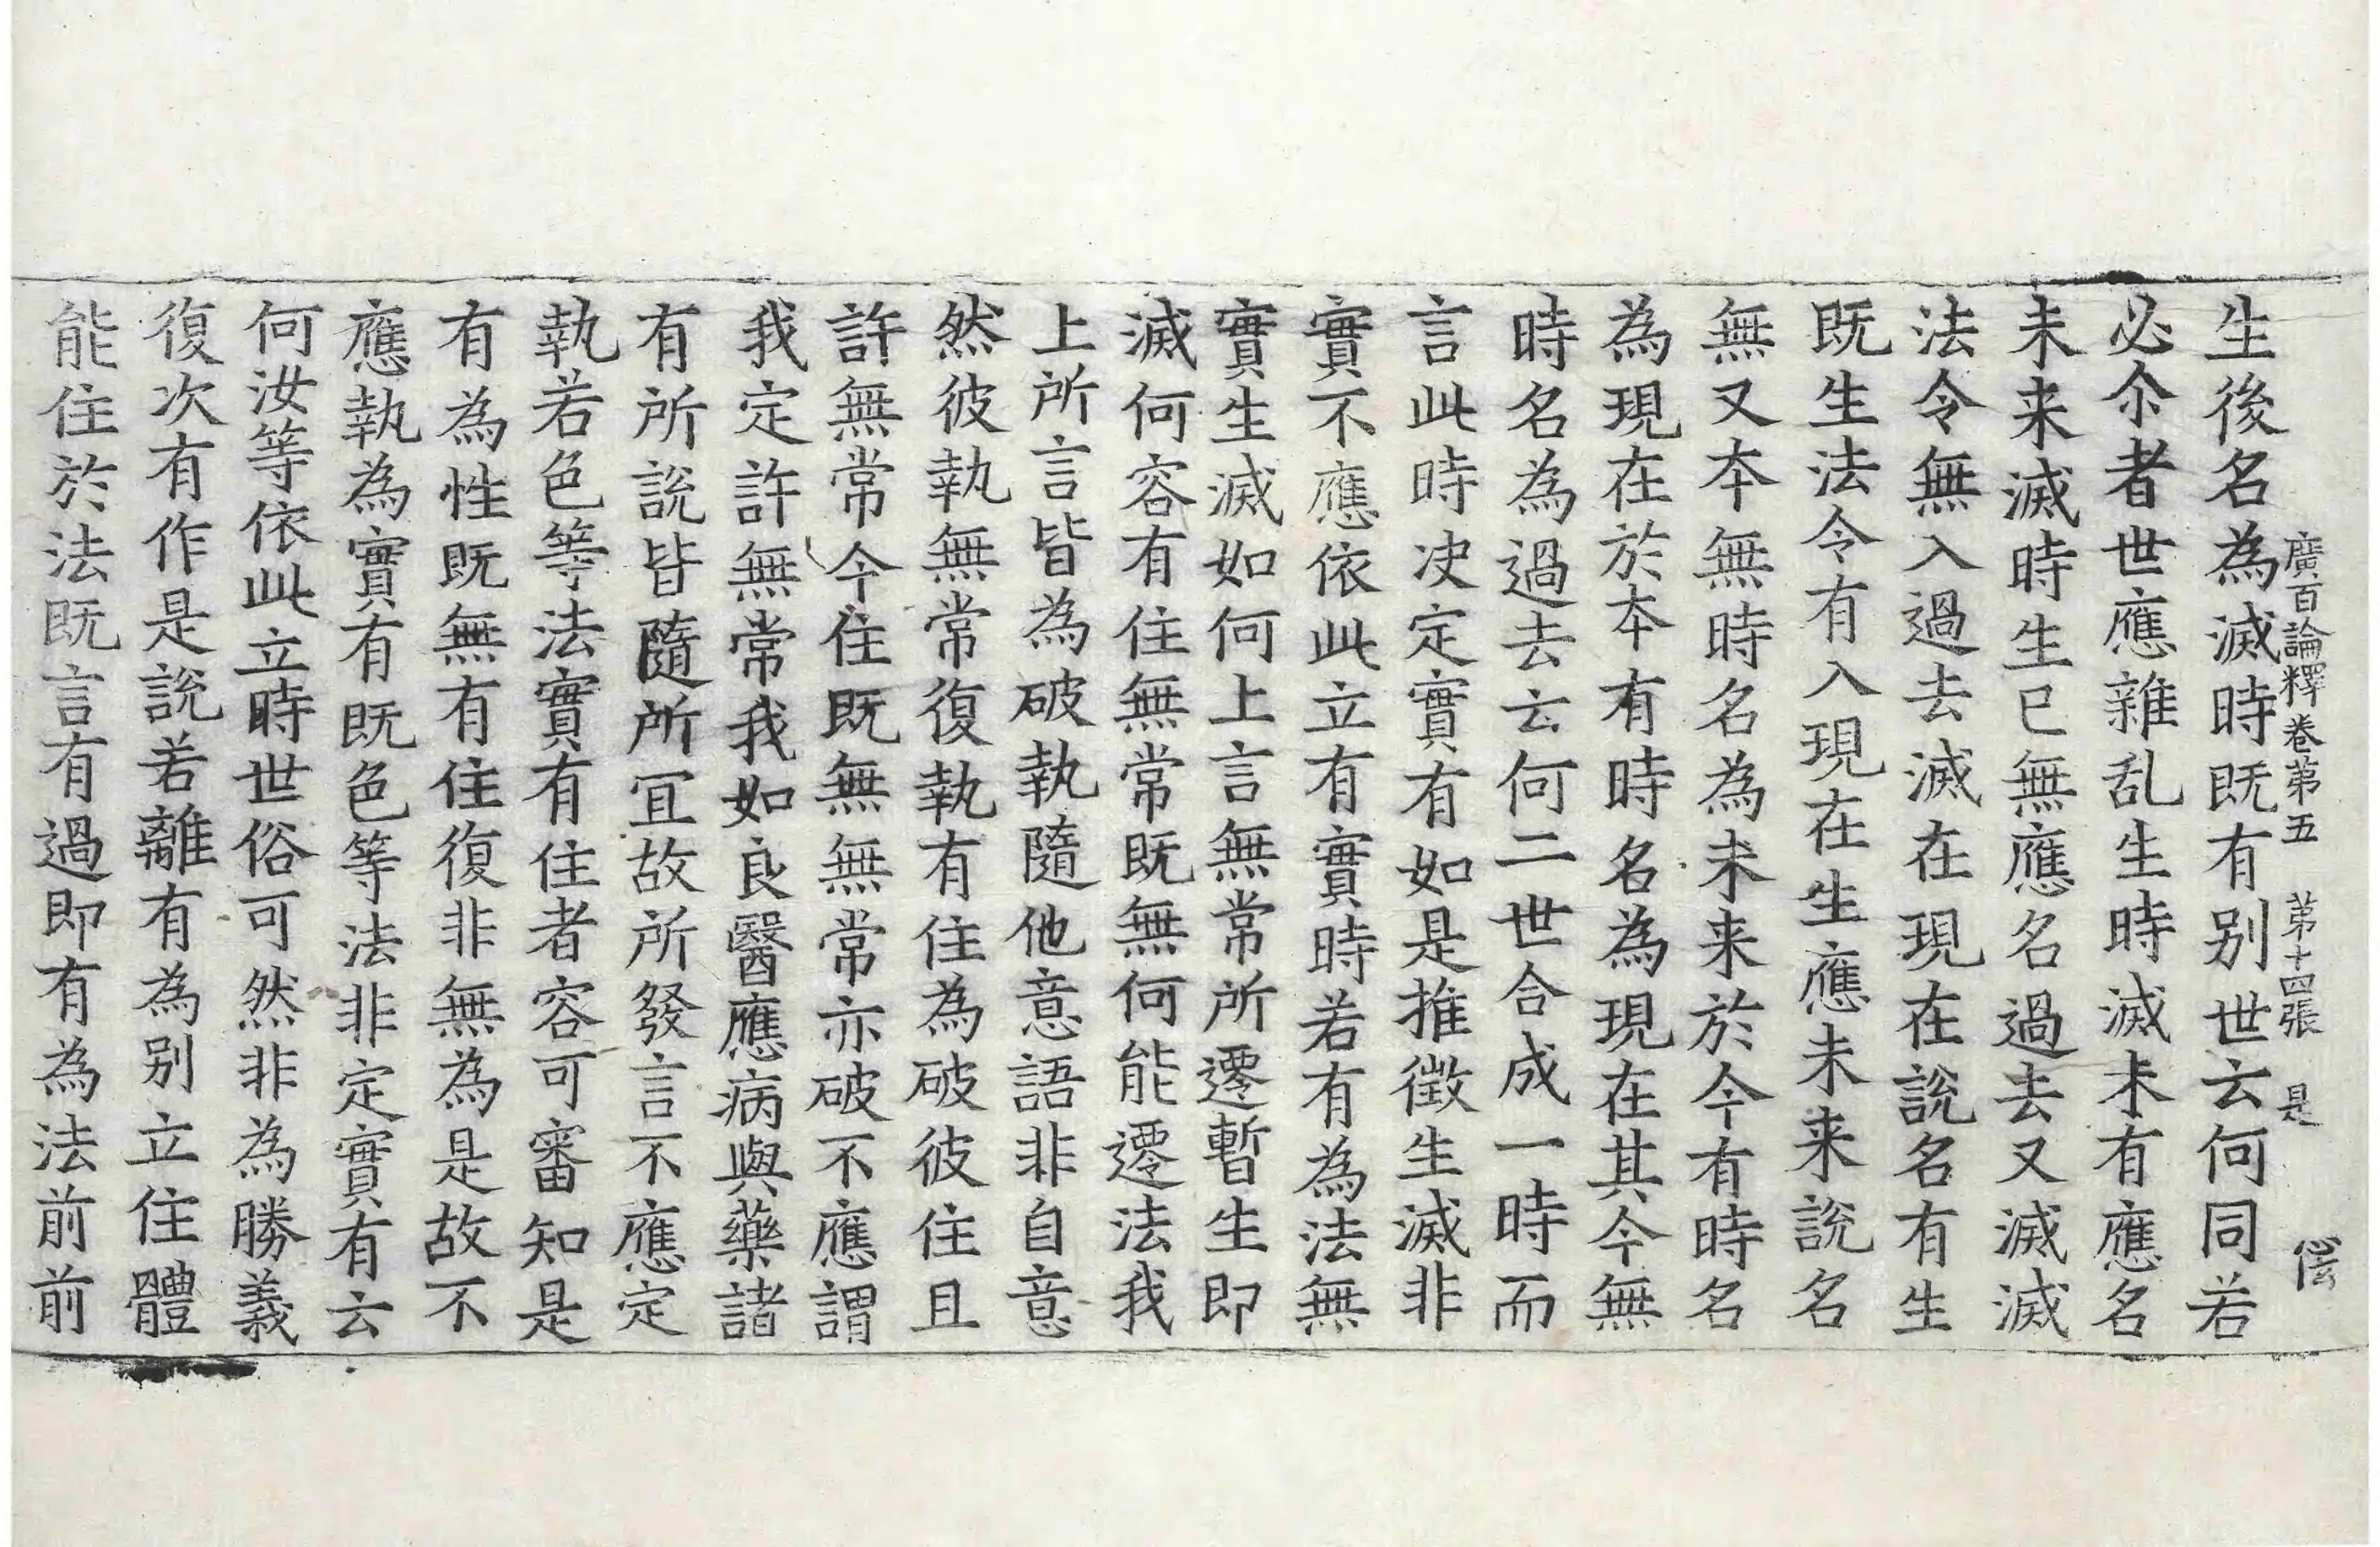 廣百論釋卷苐五 苐十四張 是
生後名為滅時既有別世云何同若
必尒者世應雜乱生時滅未有應名
未来滅時生已無應名過去又滅滅
法令無入過去滅在現在說名有生
既生法令有入現在生應未来說名
無又本無時名為未来於今有時名
為現在於本有時名為現在其今無
時名為過去云何二世合成一時而
言此時决定實有如是推徵生滅非
實不應依此立有實時若有為法無
實生滅如何上言無常所遷暫生即
滅何容有住無常既無何能遷法我
上所言皆為破執隨他意語非自意
然彼執無常復執有住為破彼住且
許無常今住既無無常亦破不應謂
我定許無常我如良醫應病與藥諸
有所說皆隨所冝故所發言不應定
執若色等法實有住者容可審知是
有為性既無有住復非無為是故不
應執為實有既色等法非定實有云
何汝等依此立時世俗可然非為勝義
復次有作是說若離有為別立住體
能住於法既言有過即有為法前前